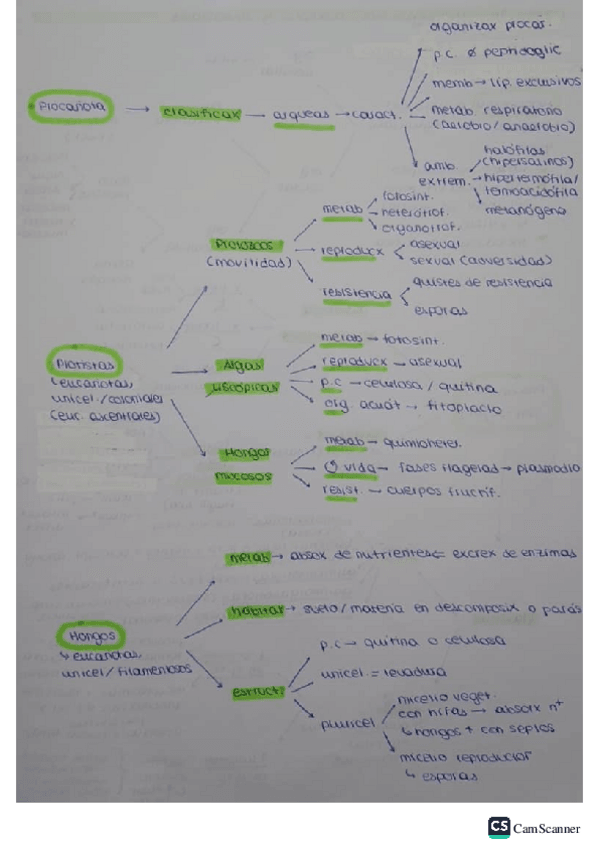 organizax procar.
p.c. ∅ peptidoglic
memb → líp. exclusivos
Procariota → clasificax → arqueas → caract.
metab. respiratorio
(aerobio/anaerobio)
amb. extrem.
halófilas
(hipersalinos)
hipertermófila/
termoacidófila
metanógena
Protozoos
(movilidad)
metab
fotosint.
heterótrof.
organotrof.
reproducx
asexual
sexual (adversidad)
resistencia
quistes de resistencia
esporas
Protistas
↳eucariotas,
unicel./coloniales
(euc. ancentrales)
Algas
uscópicas
metab → fotosint.
reproducx → asexual
p.c → celulosa / quitina
org. acuát → fitoplacto
Hongos
mucosos
metab → quimioheter.
↺ vida → fases flagelad → plasmodio
resist. → cuerpos fructif.
Hongos
↳ eucariotas,
unicel/filamentosos
metab → absox de nutrientes ← excrex de enzimas
hábitat → suelo/materia en descomposix o parás
estruct.
p.c → quitina o celulosa
unicel. = levadura
pluricel
micelio veget.
con hifas → absorx n+
↳hongos + con septos
micelio reproductor
↳ esporas
CS CamScanner